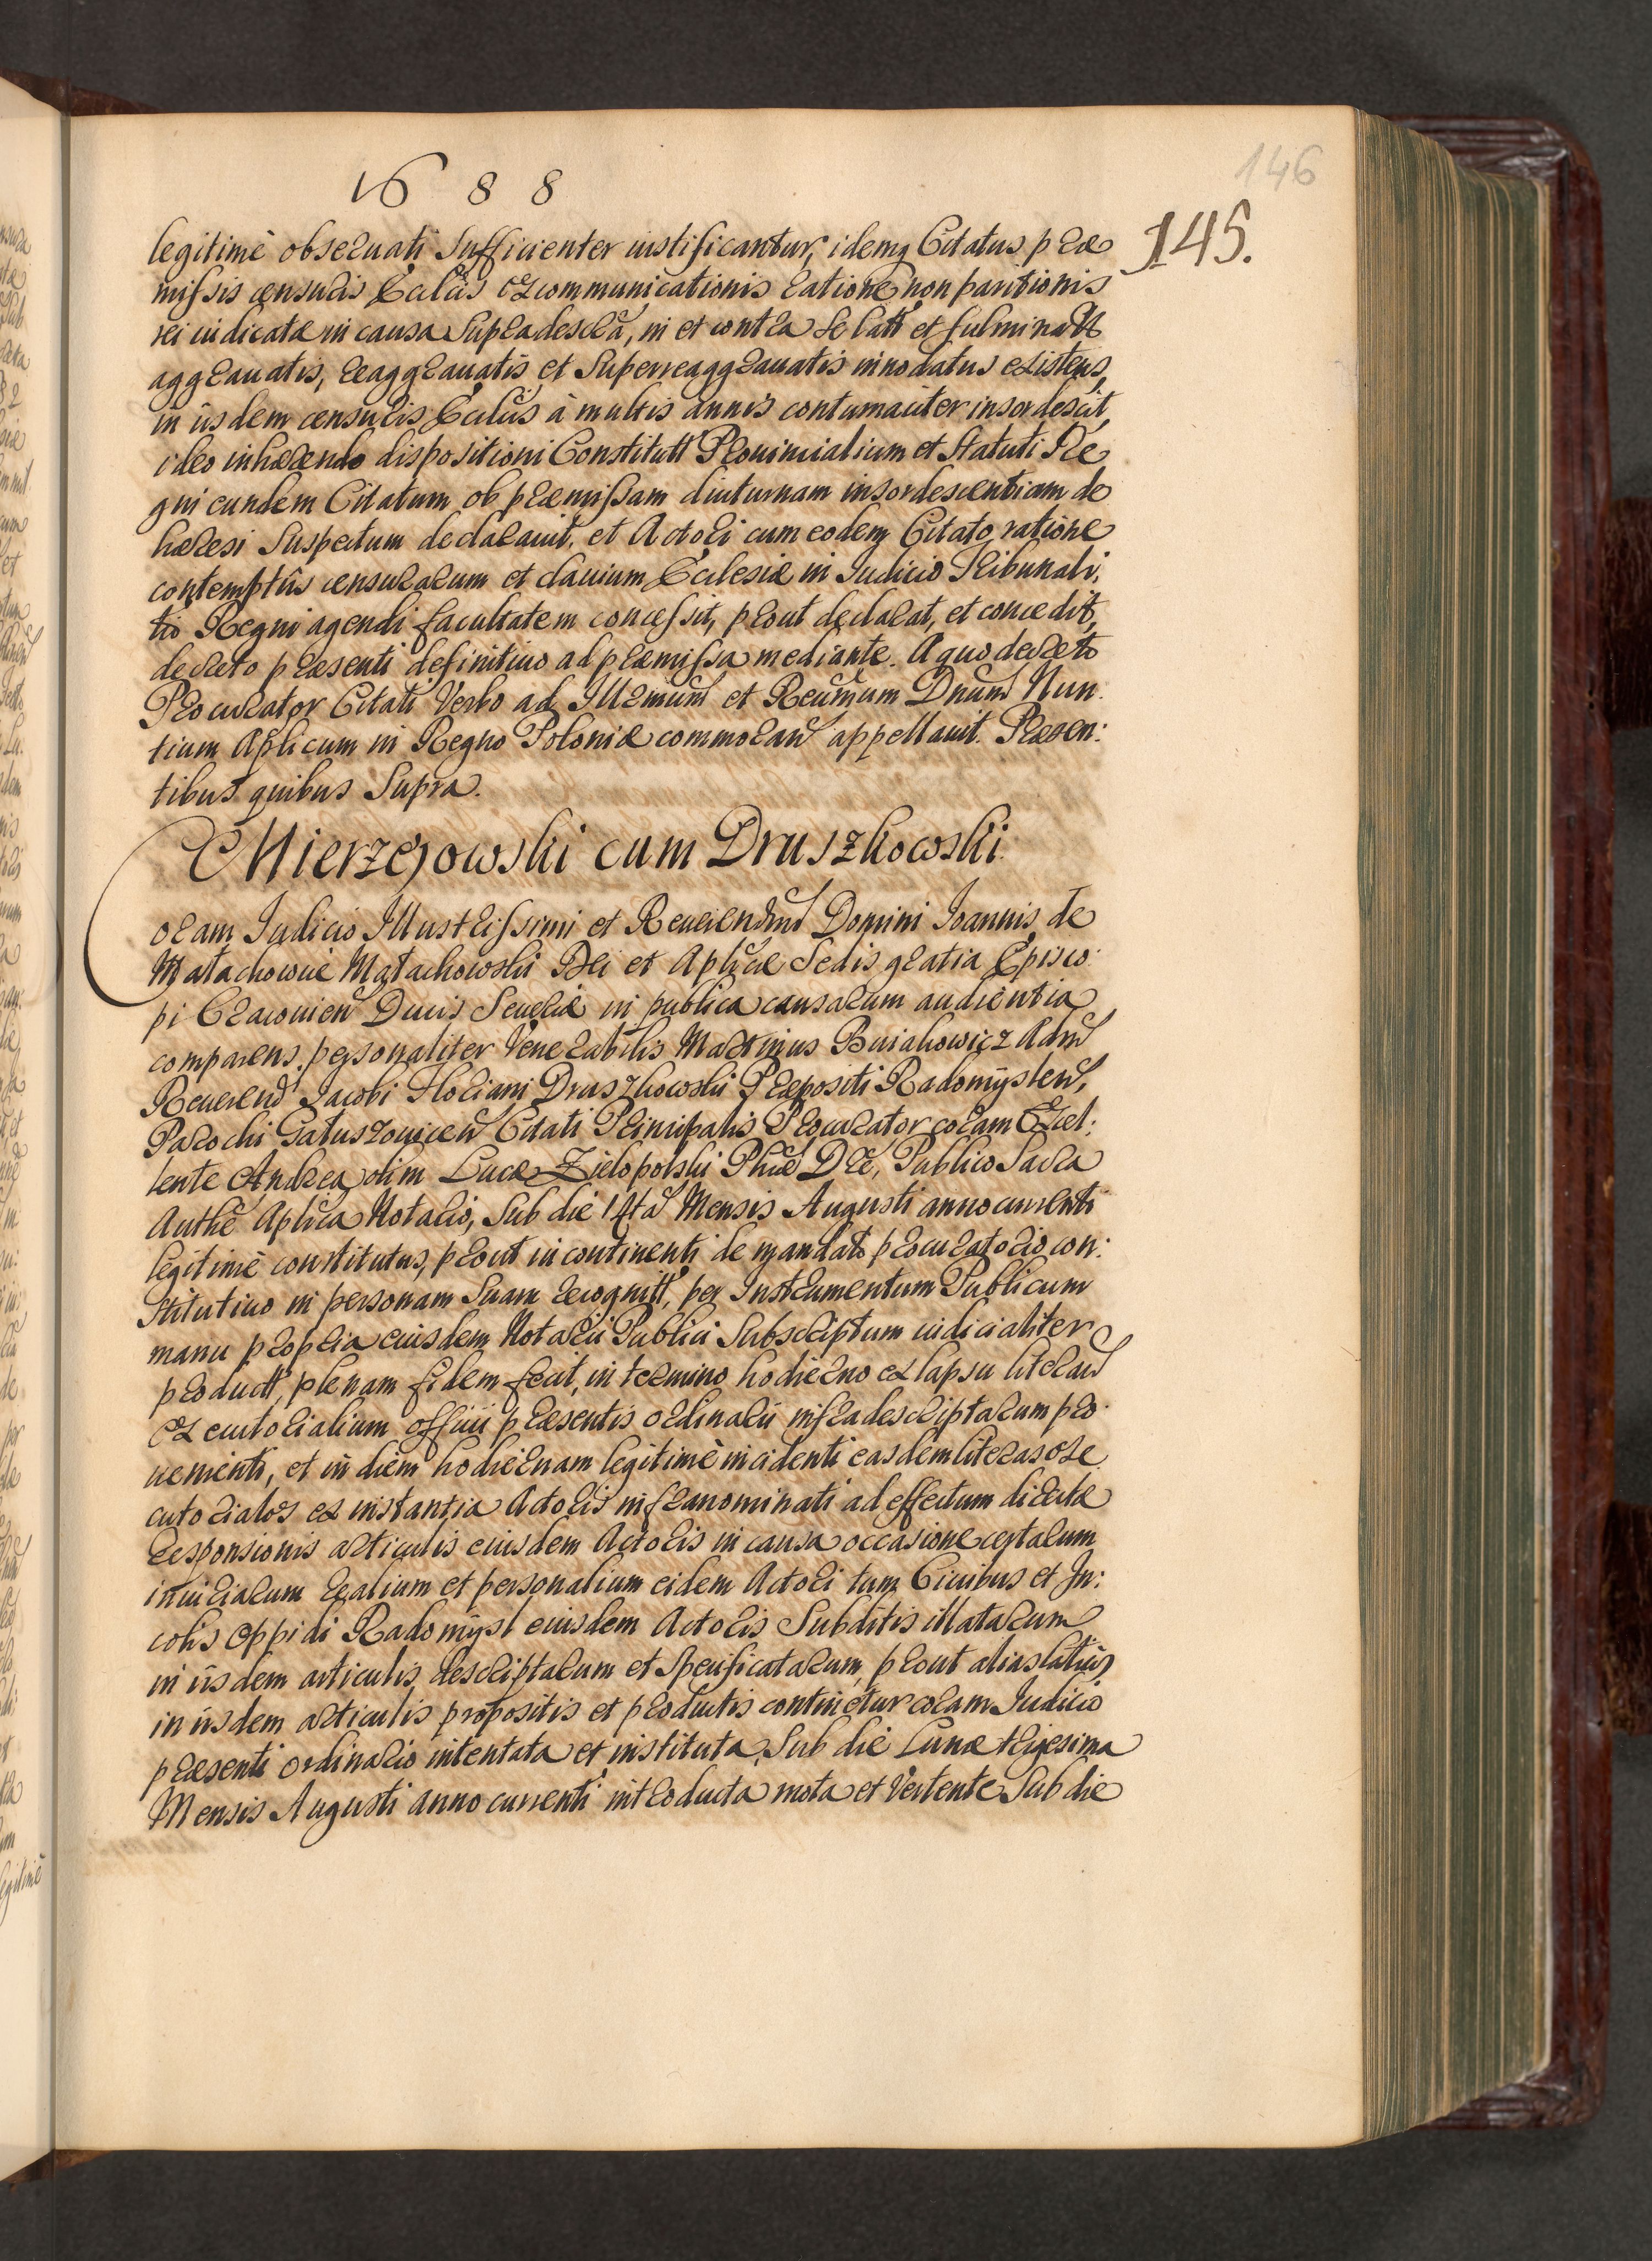 146
1688
145.
legitimè obseruati Sufficienter iustificantur, idemq Citatus præ
missis censuris Ecclicis excommunicationis ratione non paritionis
rei iudicatæ in causa supradescra, in et contra se latt et fulminatt
aggrauatis, reaggrauatis et Superreaggrauatis innodatus existens,
in iisdem censuris Ecclicis à multis annis contumaciter insordescit,
ideo inhærendo dispositioni Constitutt Prouincialium et Statuti Re
gni eundem Citatum ob præmissam diuturnam insordescentiam de
hæresi Suspectum declarauit, et Actori cum eodem Citato ratione
contemptûs censurarum et clauium Ecclesiæ in Iudicio Tribunali,
tio Regni agendi facultatem concessit, prout declarat, et concedit,
decreto præsenti definitiuo ad præmissa mediante. A quo decreto
Procurator Citati Verbo ad Illrmum et Reumum Dnum Nun
tium Aplicum in Regno Poloniæ commoran appellauit. Præsen:
tibus quibus Supra.
Mierzejowski cum Druszkowski
Coram Iudicio Illustrissimi et Reuerendmi Domini Ioannis de
Małachowice Małachowski Dei et Aplicæ Sedis gratia Episco
pi Cracouien Ducis Seueriæ in publica causarum audientia
comparens personaliter Venerabilis Martinus Buiakowicz Admd
Reuerend Iacobi Floriani Druszkowski Præpositi Radomyslen,
Parochi Gatuszouicen Citati Principalis Procurator coram Excel:
lente Andrea olim Lucæ Zielopolski Phiæ Dre, Publico Sacra
Authe Aplica Notario, Sub die 14ta Mensis Augusti anno currenti
legitimè constitutus, prout in continenti de mandato procuratorio con:
stitutiuo in personam Suam recognitt, per Instrumentum Publicum
manu propria eiusdem Notarii Publici Subscriptum iudicialiter
productt, plenam fidem fecit, in termino hodierno ex lapsu literarum
executorialium officii præsentis ordinarii infradescriptarum pro
uenienti, et in diem hodiernam legitimè incidenti easdem literas exe
cutoriales ex instantia Actoris infranominati ad effectum directæ
Responsionis articulis eiusdem Actoris in causa occasione certarum
iniuriarum realium et personalium eidem Actori tum Ciuibus et In:
colis Oppidi Radomysl eiusdem Actoris Subditis illatarum
in iisdem articulis descriptarum et Specificatarum, prout alias latius
in iisdem articulis propositis et productis continetur coram Iudicio
præsenti ordinario intentata et instituta, Sub die Lunæ trigesima
Mensis Augusti anno currenti introducta mota et Vertente Sub die